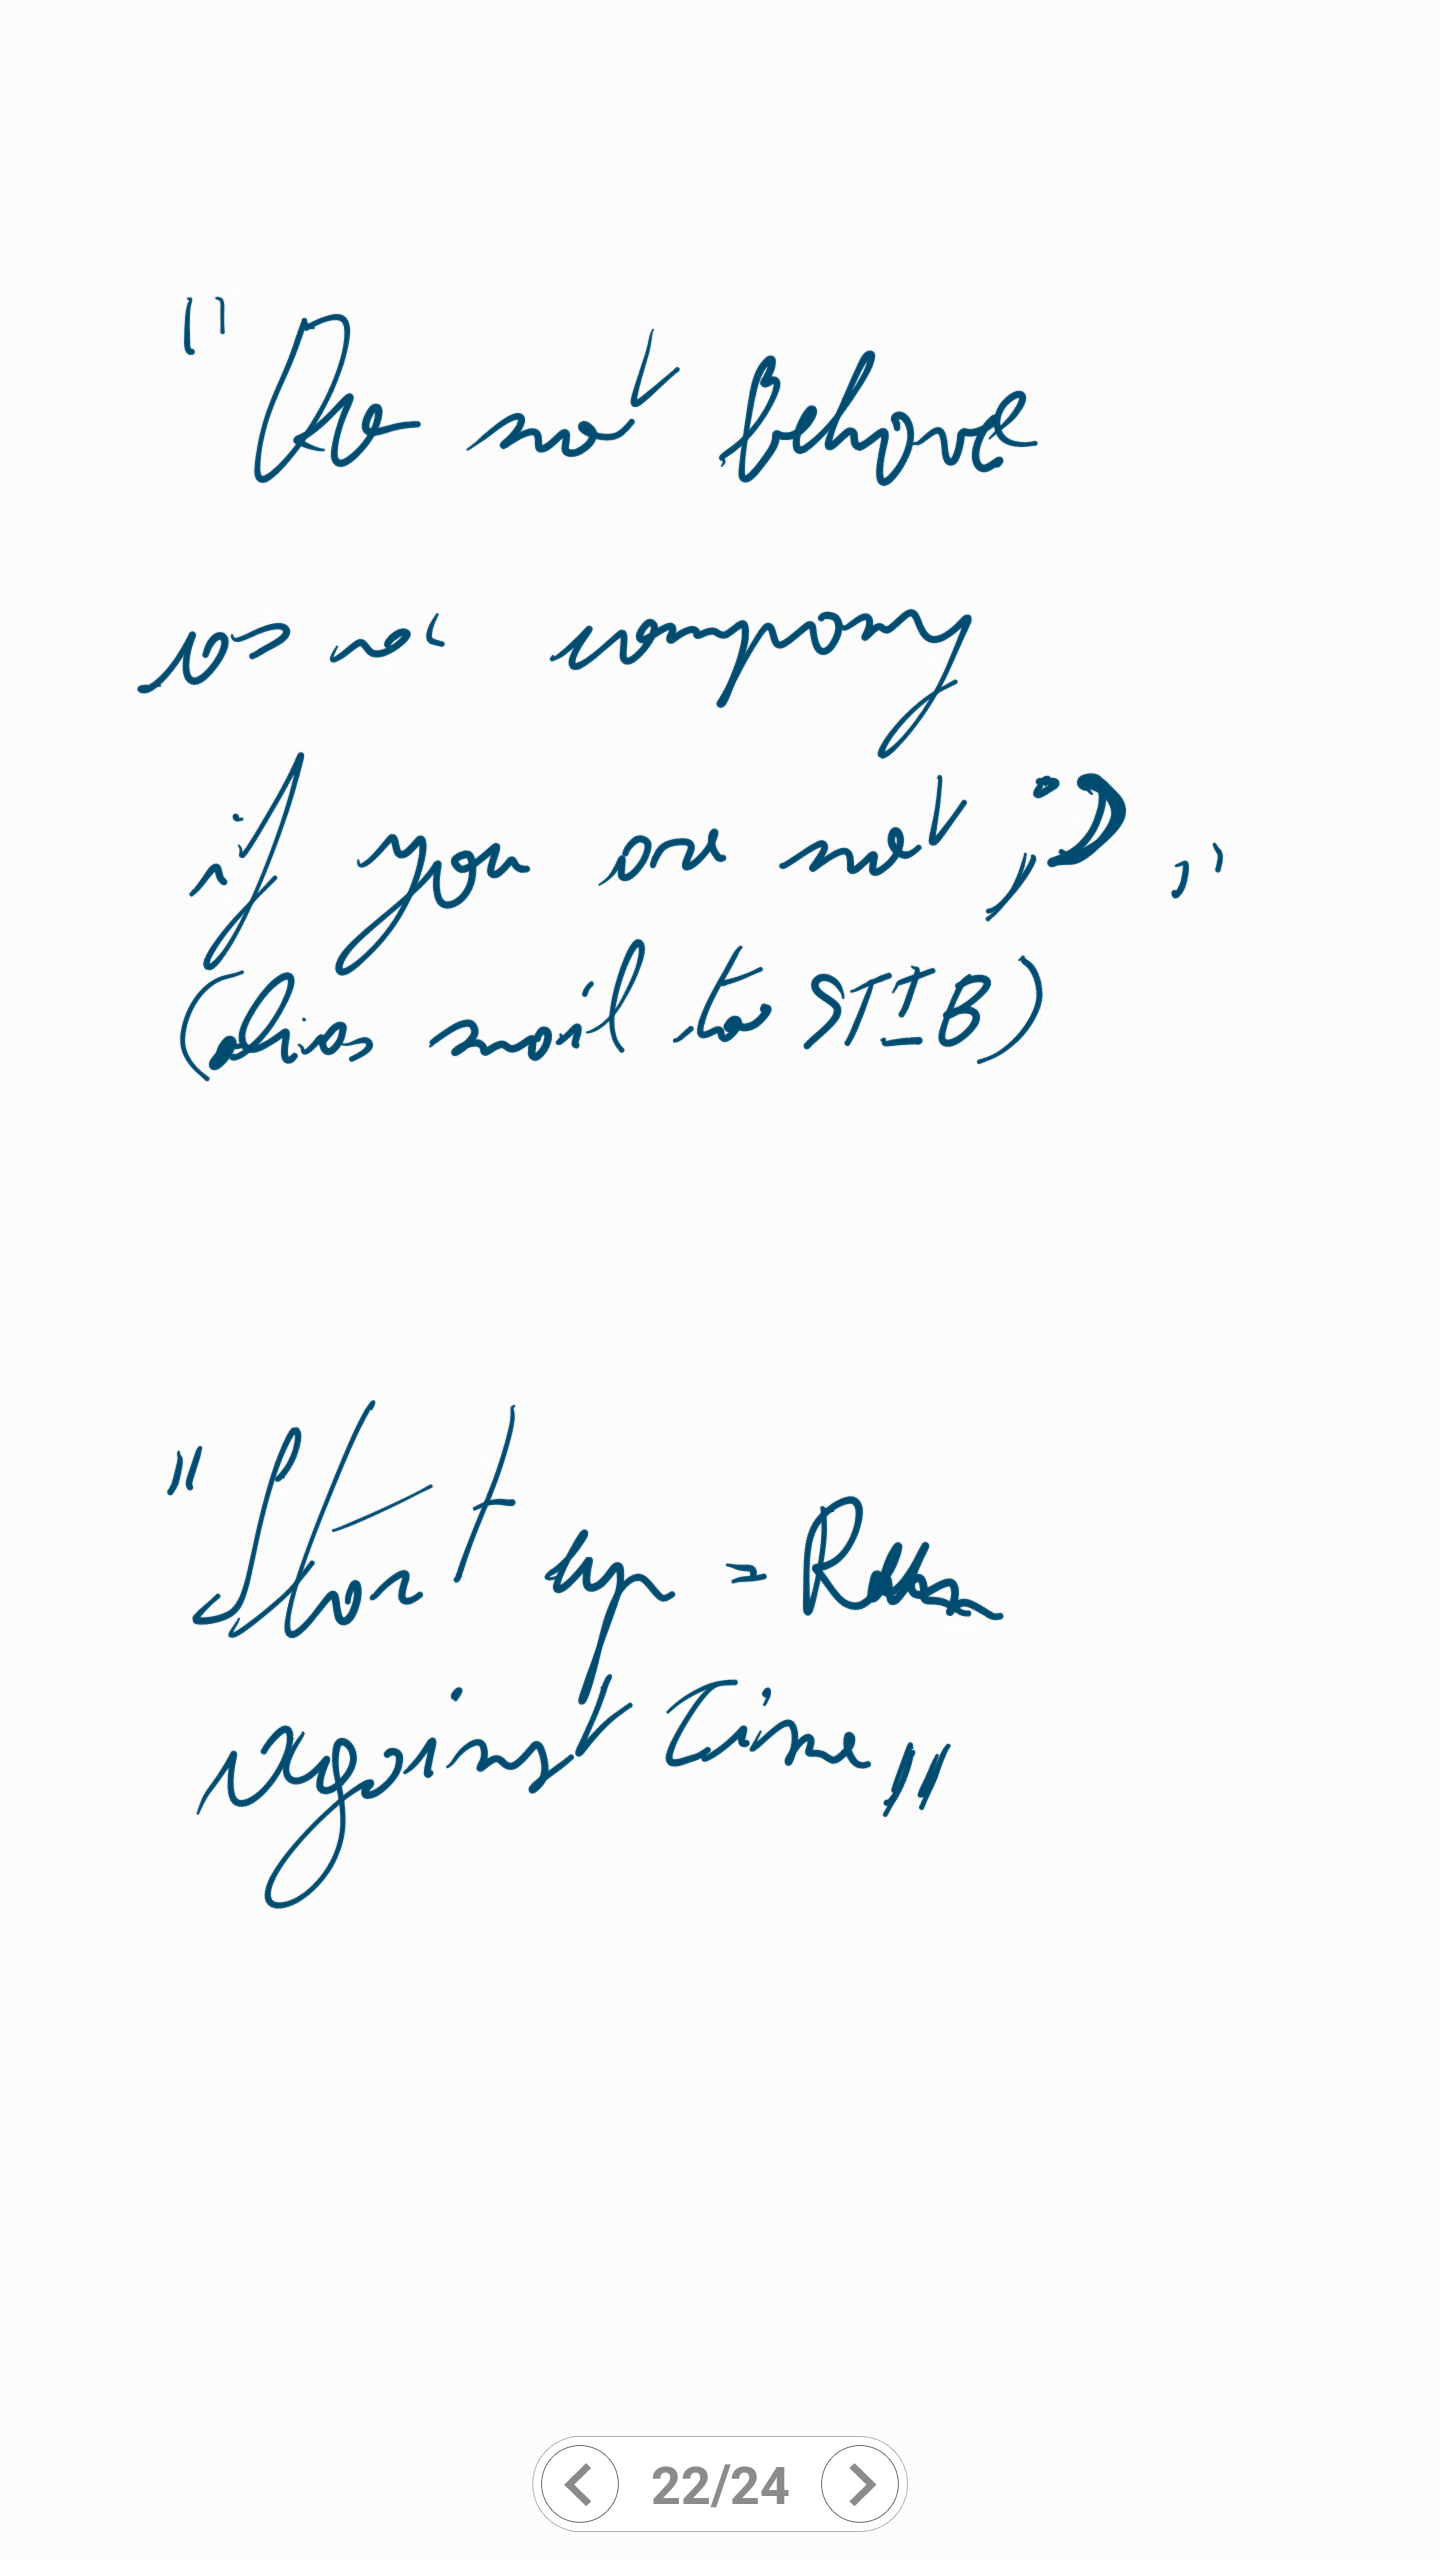 "Do not behave
as a company
if you are not ;D ,,
(alias mail to STIB)
"Start up = Run
against Time"
22/24